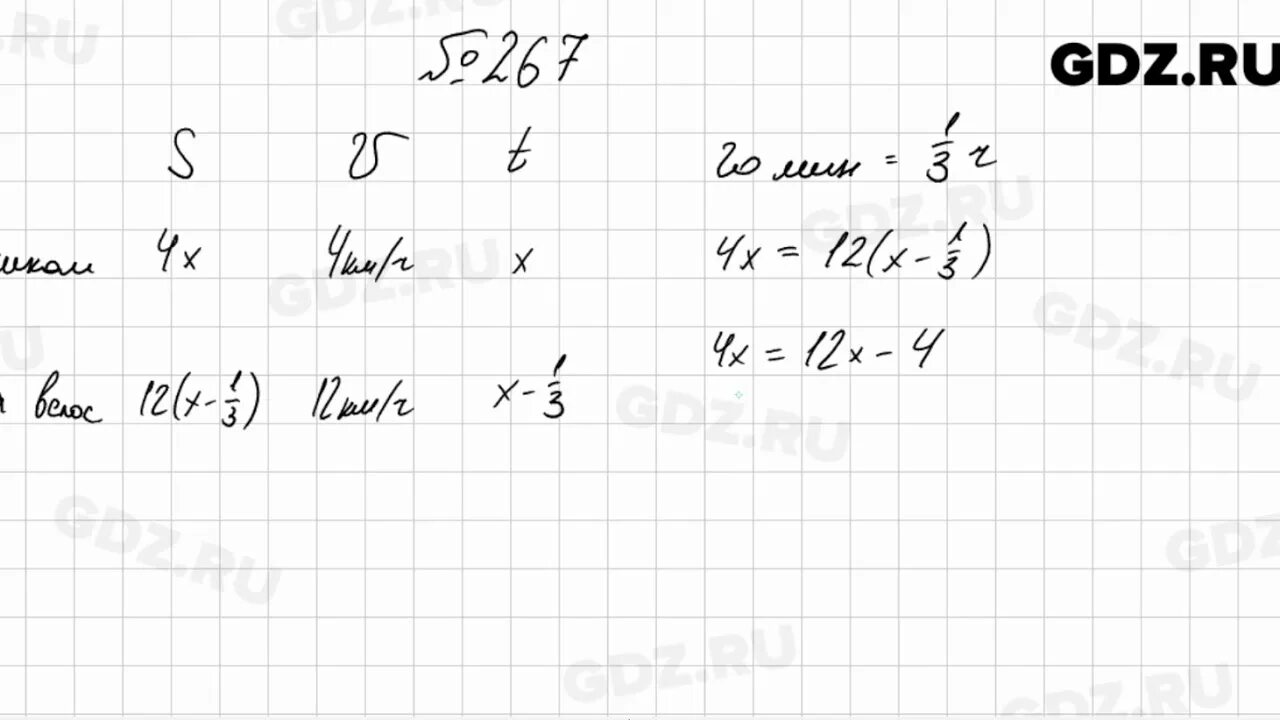 №267
GDZ.RU
S v t
4x 4км/ч x
велос 12(x-1/3) 12км/ч x-1/3
20 мин = 1/3 ч
4x = 12(x-1/3)
4x = 12x-4